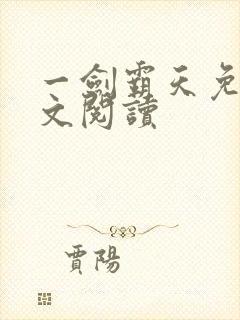 一劍霸天免
文閱讀
賈陽